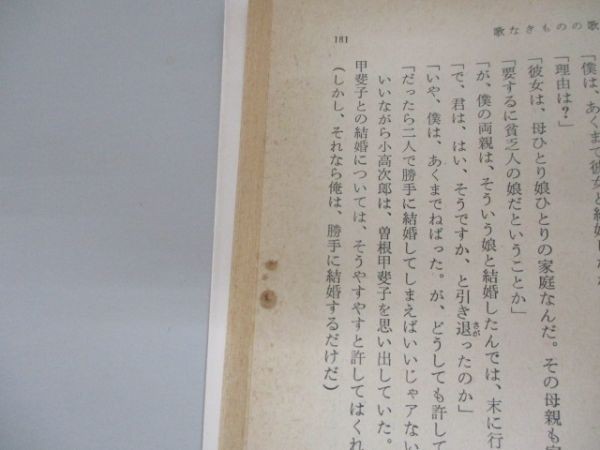 歌のものきなて歌
181
「僕は、あくまで彼女と結婚し
「理由は？」
「彼女は、母ひとり娘ひとりの家庭なんだ。その母親も
「要するに貧乏人の娘だということか」
「が、僕の両親は、そういう娘と結婚したんでは、末に行
「で、君は、はい、そうですか、と引き退ったのか」
さが
「いや、僕は、あくまでねばった。が、どうしても許して
「だったら二人で勝手に結婚してしまえばいいじゃアない
いいながら小高次郎は、曽根甲斐子を思い出していた。
甲斐子との結婚については、そうやすやすと許してはくれ
（しかし、それなら俺は、勝手に結婚するだけだ）